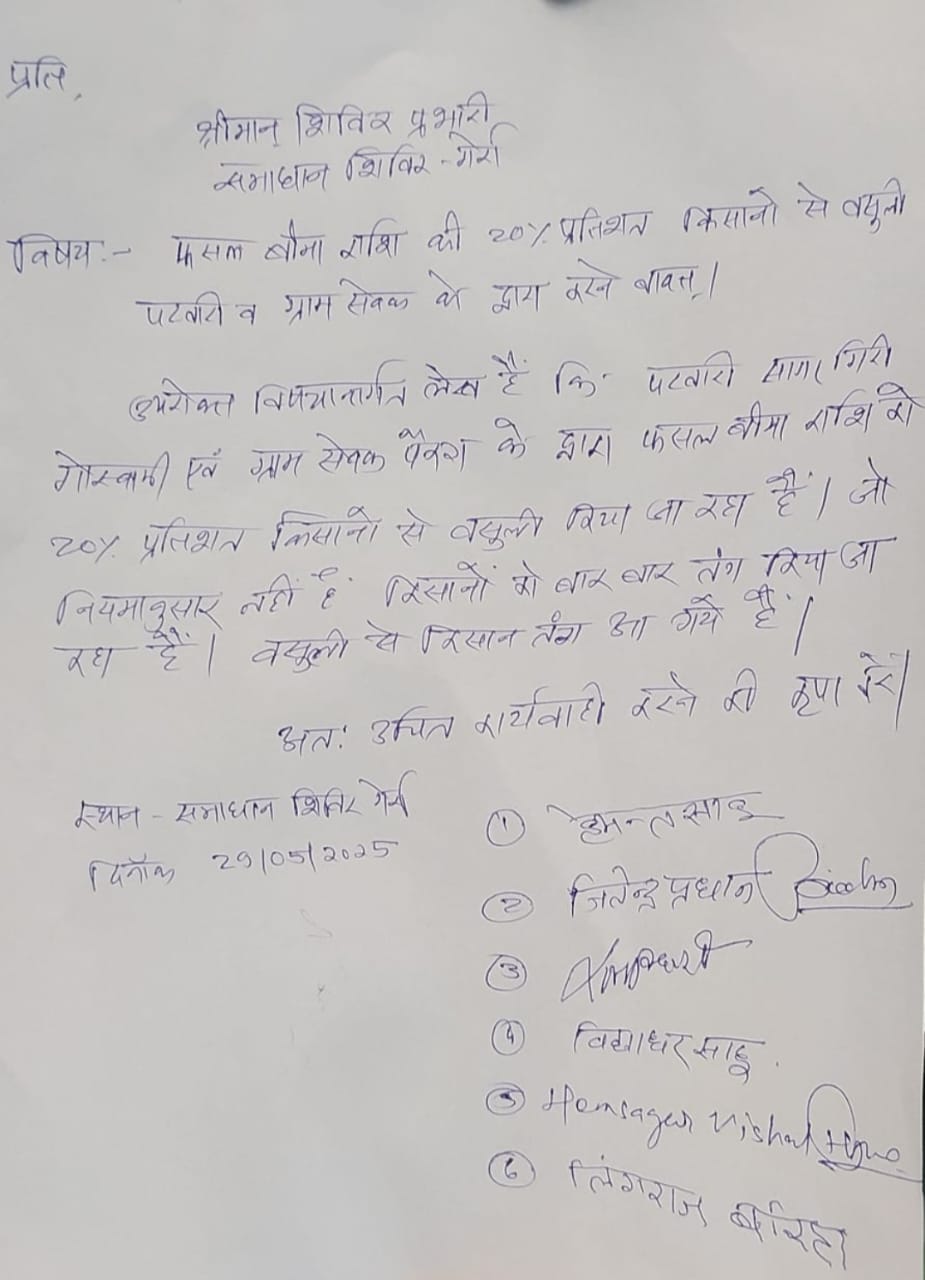 प्रति,
श्रीमान् शिविर प्रभारी
समाधान शिविर - गेर्रा
विषय:- फसल बीमा राशि की 20% प्रतिशत किसानों से वसुली
पटवारी व ग्राम सेवक के द्वारा करने बावत्।
उपरोक्त विषयान्तर्गत लेख हैं कि पटवारी सागर गिरी
गोस्वामी एवं ग्राम सेवक पैंकरा के द्वारा फसल बीमा राशि को
20% प्रतिशत किसानो से वसुली किया जा रहा हैं। जो
नियमानुसार नहीं है किसानों को बार बार तंग किया जा
रहा हैं। वसुली से किसान तंग आ गये हैं।
अतः उचित कार्यवाही करने की कृपा करें।
स्थान - समाधान शिविर गेर्रा
दिनाँक 29/05/2025
① हेमन्त साहू
② जितेन्द्र प्रधान
③
④ विद्याधर साहू.
⑤ Hemsagar Vishal
⑥ लिंगराज बारिहा